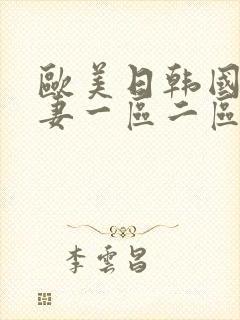 歐美日韩國
妻一區二區
李雲昌